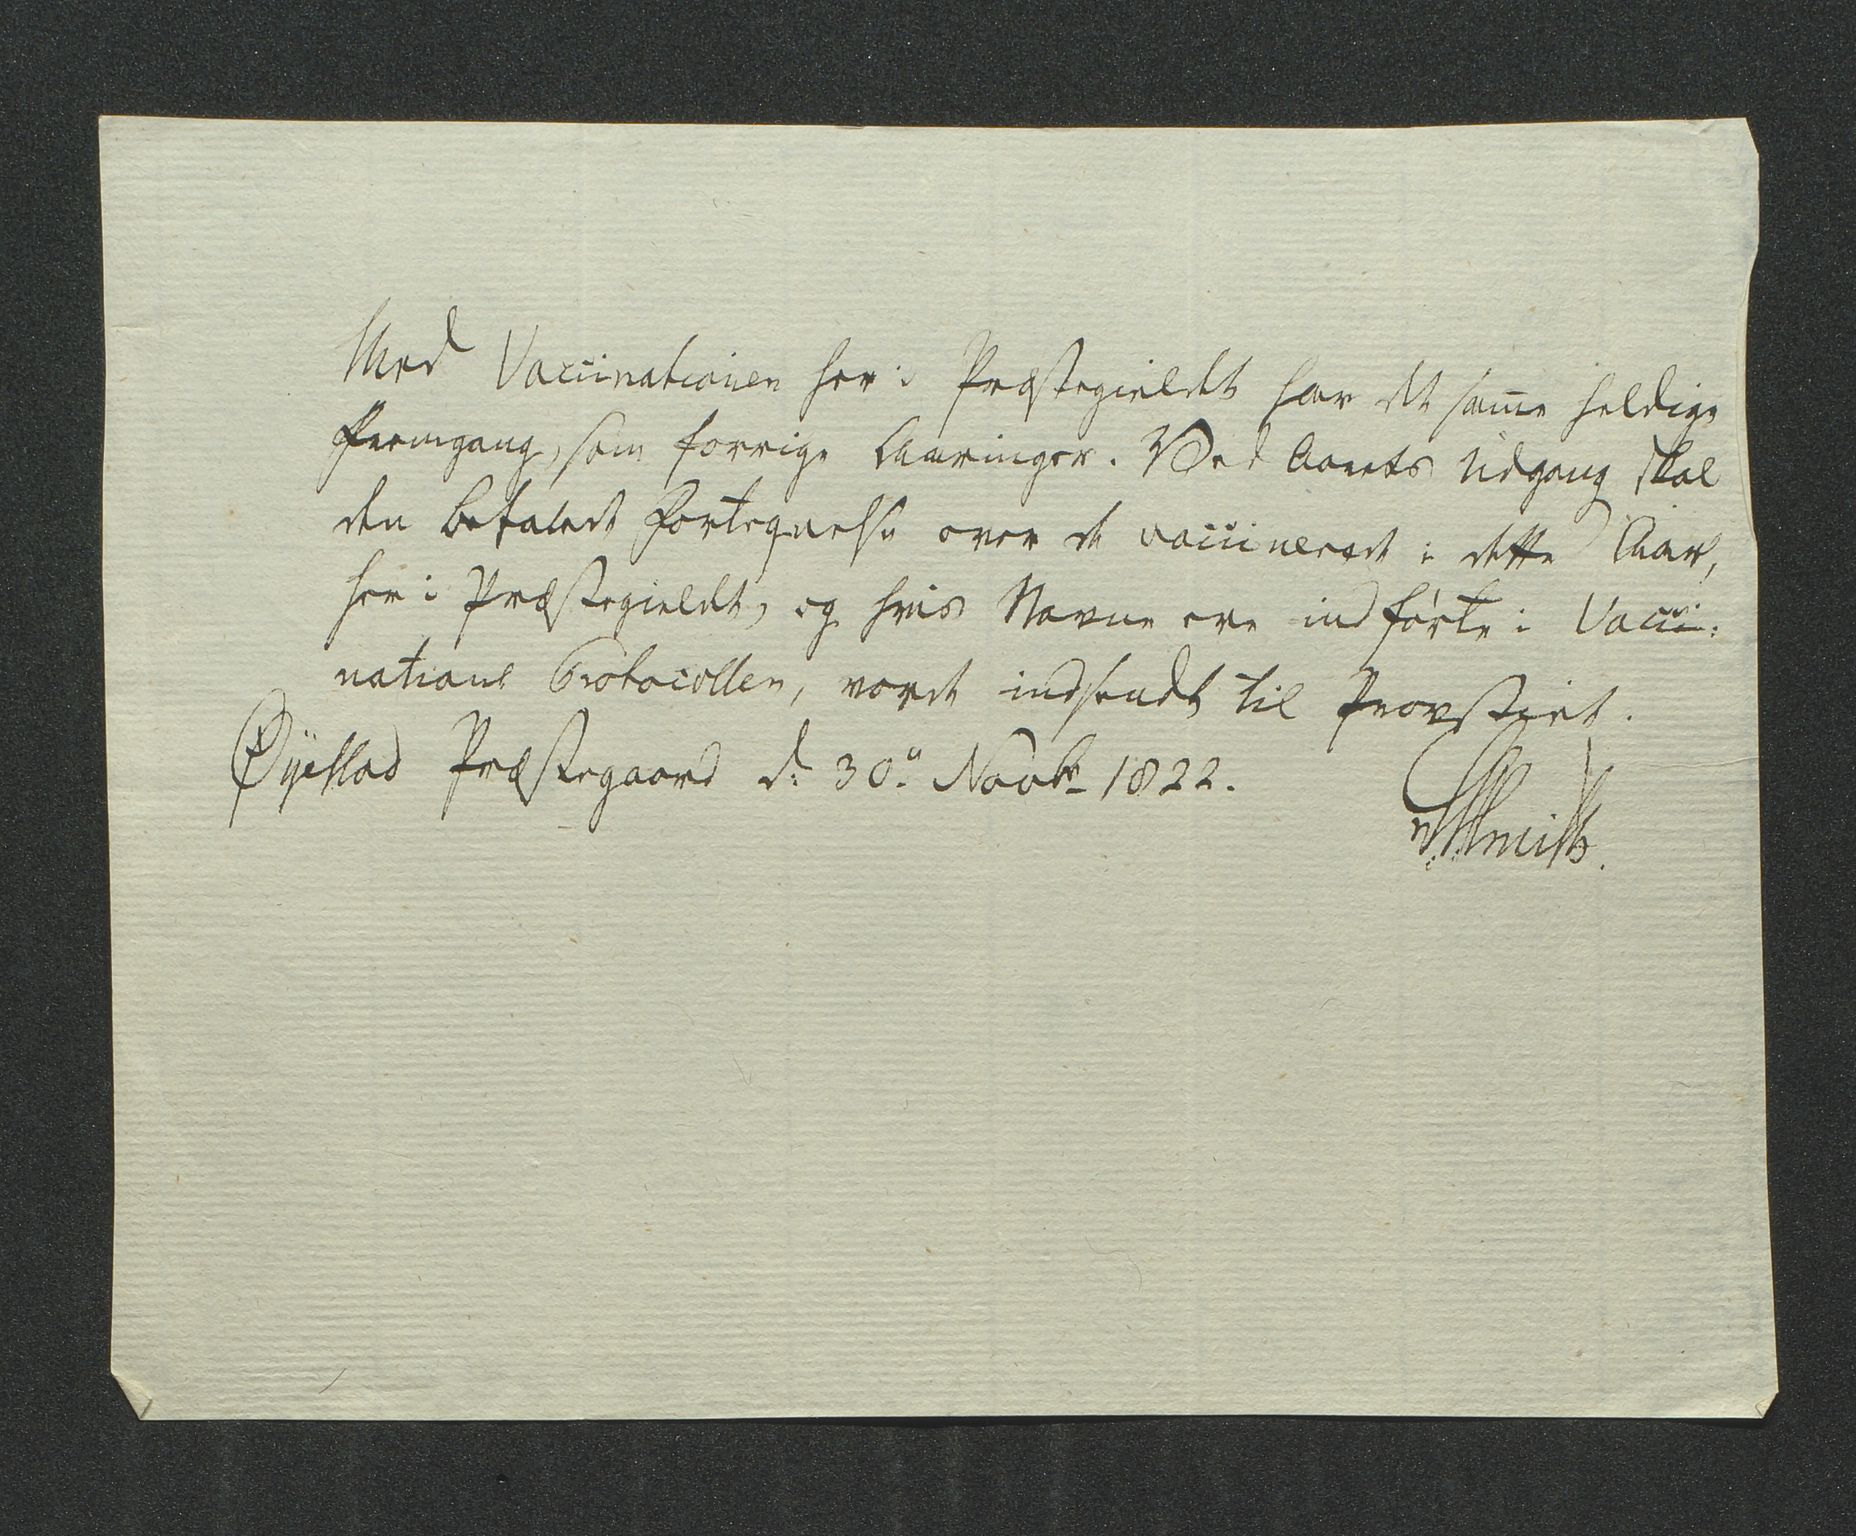 Med Vaccinationen her i Præstegieldet har det samme heldige
Fremgang, som forrige Aaringer. Ved Aarets Udgang skal
den befalede Fortegnelse over de vaccinerede i dette Aar,
her i Præstegieldet, og hvis Navne ere indførte i Vacci:
nations Protocollen, vorde indsendt til Provstiet.
Øyestad Præstegaard d: 30te Novbr 1822.
Smith.